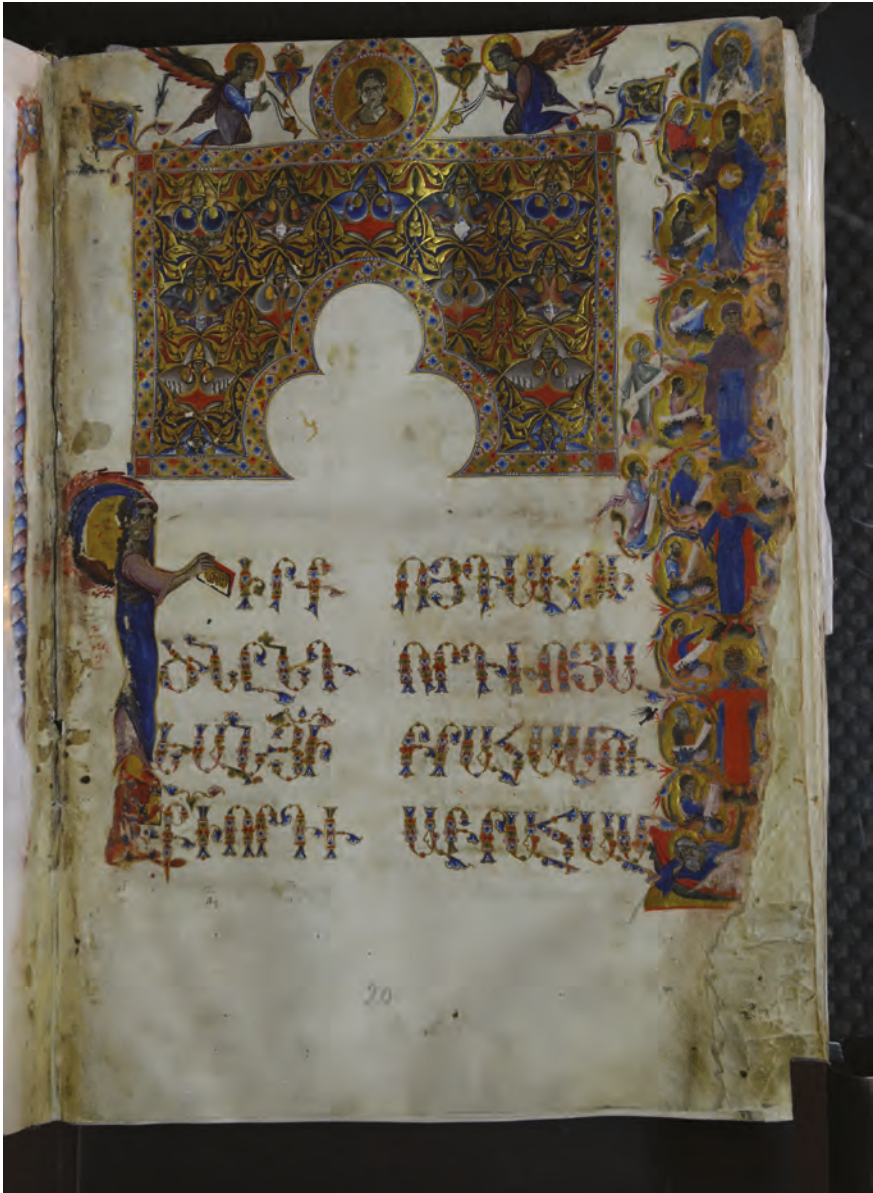 ԳԻՐՔ
ԾՆԸՆԴ
ԵԱՆՅԻ
ՔԻՈՐԴՒ
ՈՅԴԱՒԹԻ
ՈՐԴՒՈՅԱ
ԲՐԱՀԱՄՈՒ
ԱԲՐԱՀԱՄ
20